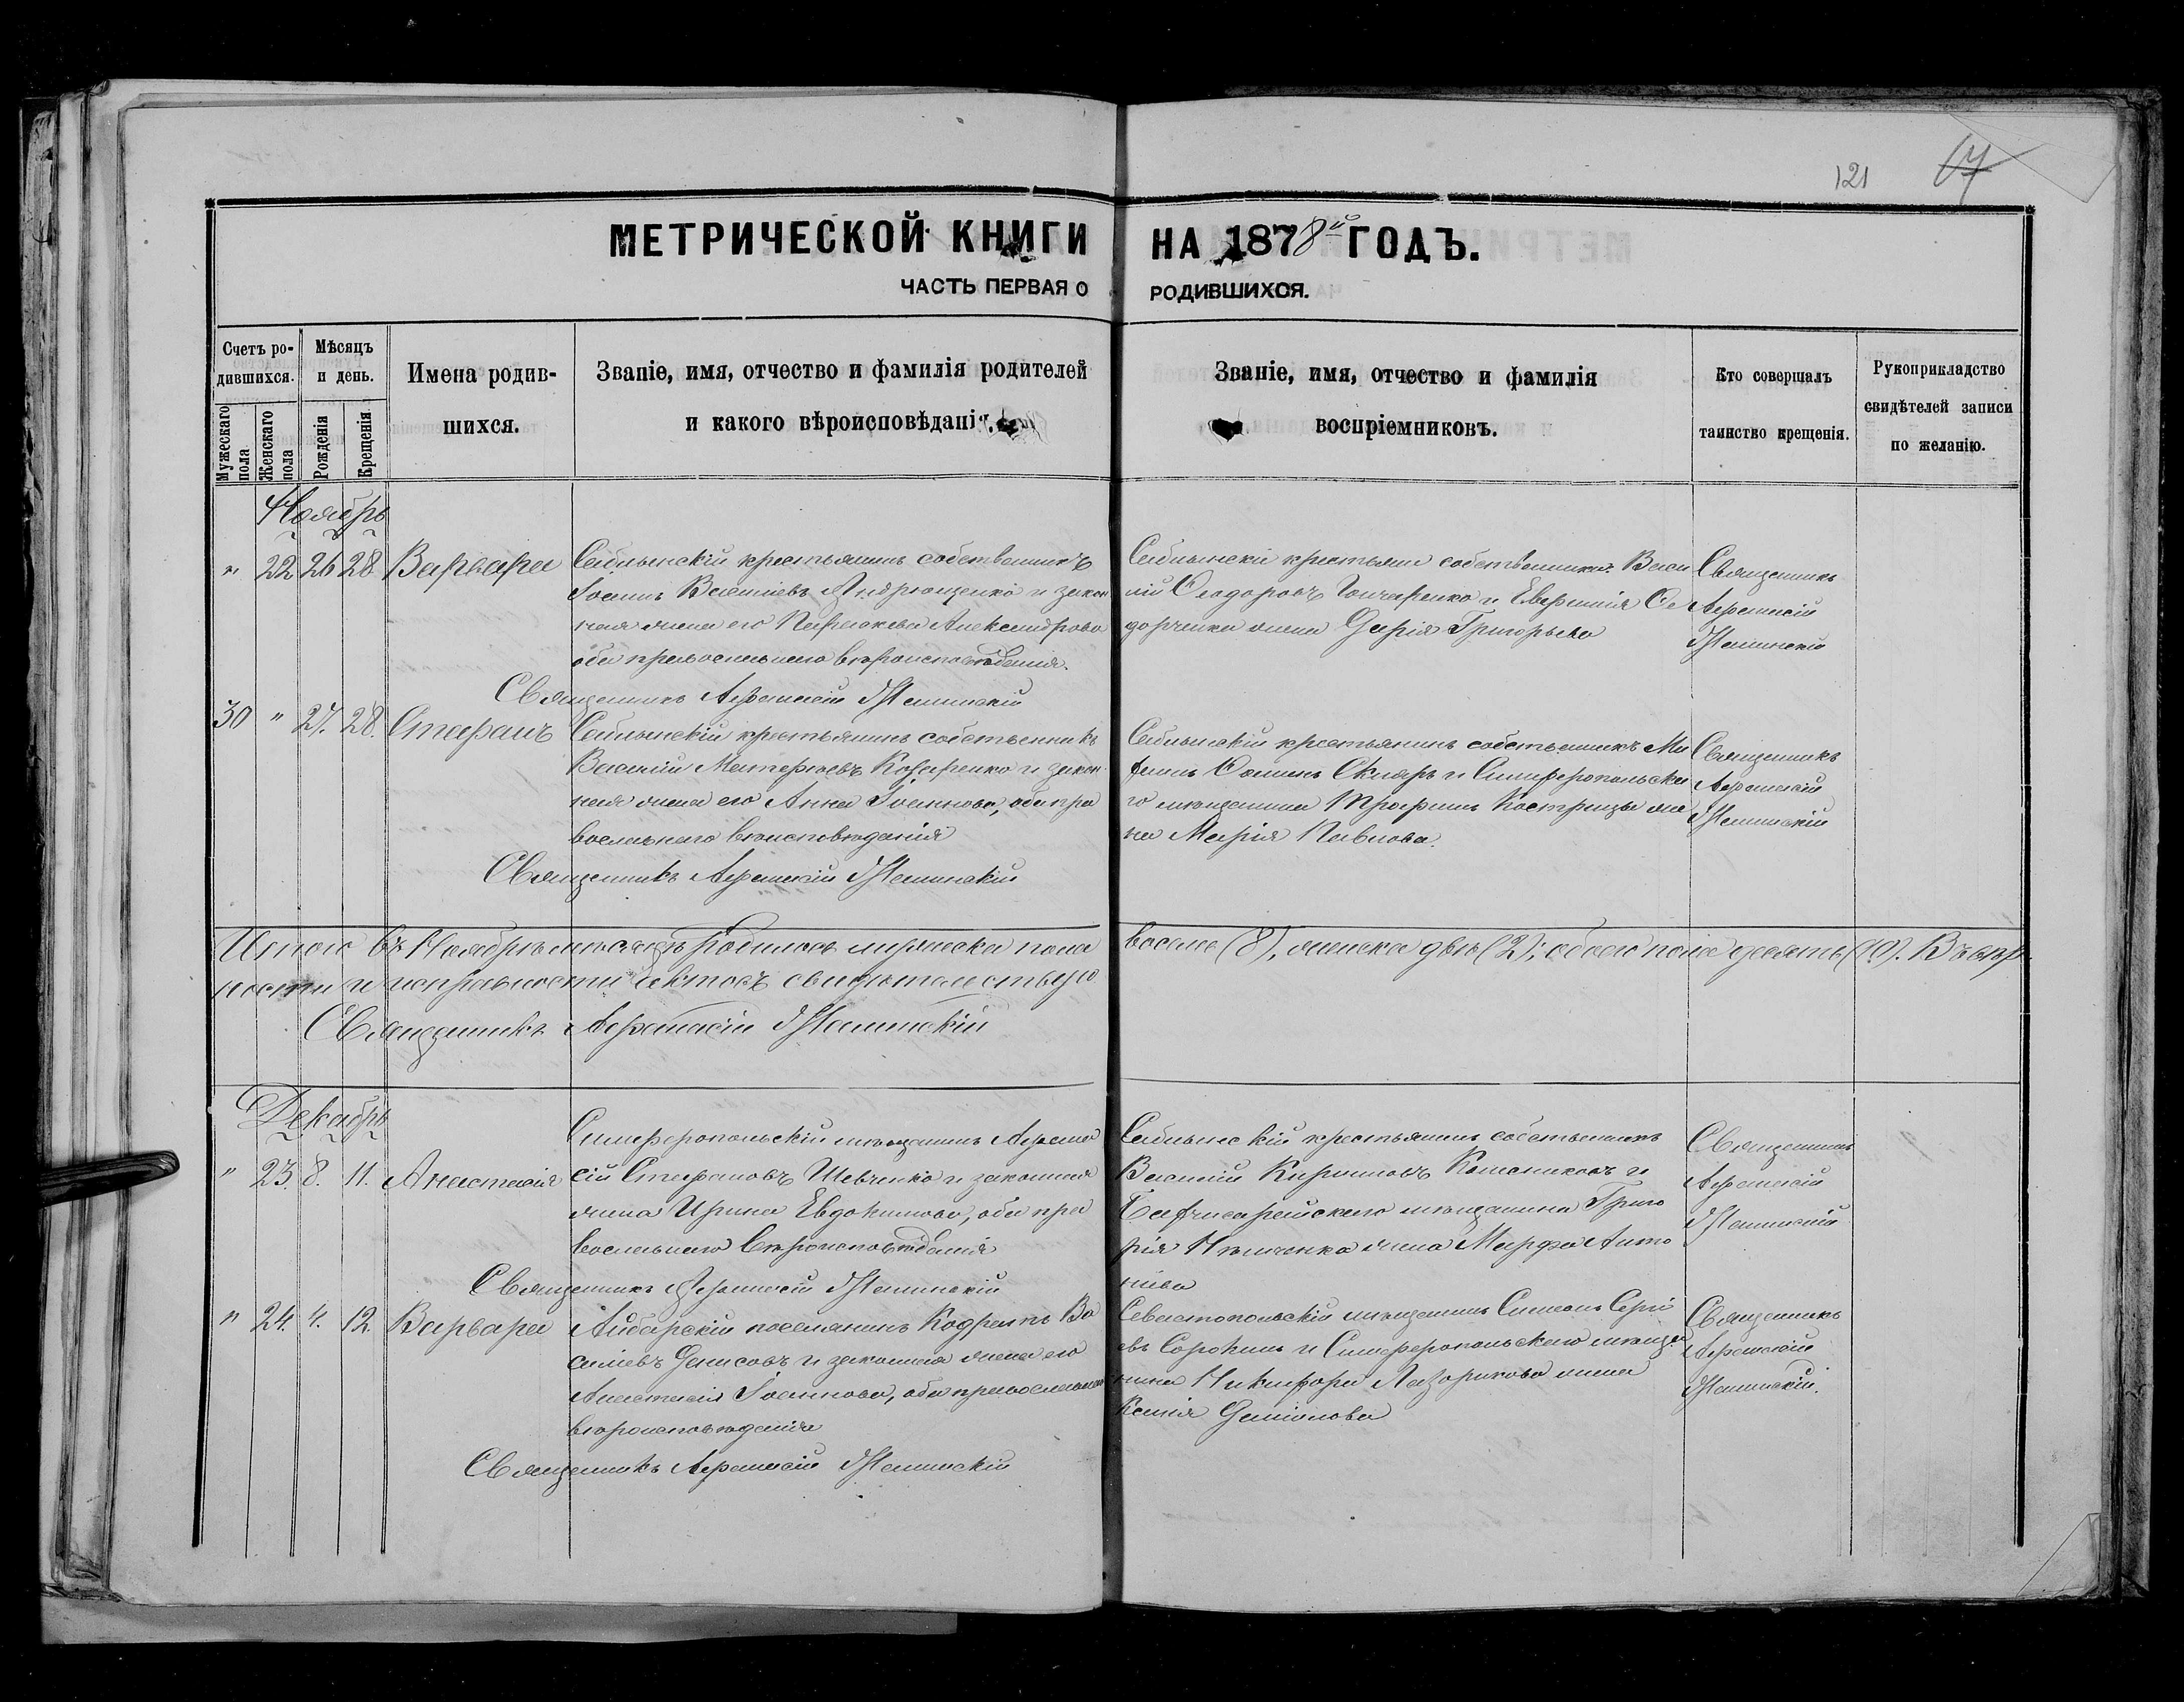 121 67
МЕТРИЧЕСКОЙ КНИГИ НА 1878й ГОДЪ.
ЧАСТЬ ПЕРВАЯ О РОДИВШИХСЯ.
Счетъ родившихся.
Мужескаго пола
Женскаго пола
Мѣсяцъ и день.
Рожденія
Крещенія
Имена родив-
шихся.
Званіе, имя, отчество и фамилія родителей
и какого вѣроисповѣданія.
Званіе, имя, отчество и фамилія
воспріемниковъ.
Кто совершалъ
таинство крещенія.
Рукоприкладство
свидѣтелей записи
по желанію.
Ноябрь
" 22 26 28 Варвара
Саблынскій крестьянинъ собственникъ
Іоаннъ Василіевъ Андрющенко и закон
ная жена его Параскева Александрова
оба православнаго вѣроисповѣданія.
Священникъ Афанасій
Саблынскій крестьянинъ собственникъ Васи
лій Ѳеодоровъ Гончаренко и
жена Дарія Григорьева
Священникъ
Афанасій
30 " 27. 28. Стефанъ
Саблынскій крестьянинъ собственникъ
Василій и закон
ная жена его Анна Іоаннова, оба пра
вославнаго вѣроисповѣданія
Священникъ Афанасій
Саблынскій крестьянинъ собственникъ
и Симферопольска
го мѣщанина Трофима Кострицы же
на Марія Павлова.
Священникъ
Афанасій
Итого въ Ноябрѣ мѣсяцѣ родилось мужеска пола восемь (8), женска двѣ (2); обоего пола десять (10). Въ вѣр
ности и исправности актовъ свидѣтельствую
Священникъ Афанасій
Декабрь
" 23. 8. 11. Анастасія
Симферопольскій мѣщанинъ Афана
сій Стефановъ Шевченко и законная
жена Ирина Евдокимова, оба пра
вославнаго вѣроисповѣданія
Священникъ Афанасій
Саблынскій крестьянинъ собственникъ
Василій Кириловъ Колесниковъ и
Бахчисарайскаго мѣщанина Григо
рія жена Марфа Анто
нова
Священникъ
Афанасій
" 24. 4. 12. Варвара
Айбарскій поселянинъ Кодратъ Ва
силіевъ Денисовъ и законная жена его
Анастасія Іоаннова, оба православнаго
вѣроисповѣданія
Священникъ Афанасій
Севастопольскій мѣщанинъ Симеонъ Сергі
евъ Сорокинъ и Симферопольскаго мѣща
нина Никифора жена
Ксенія
Священникъ
Афанасій